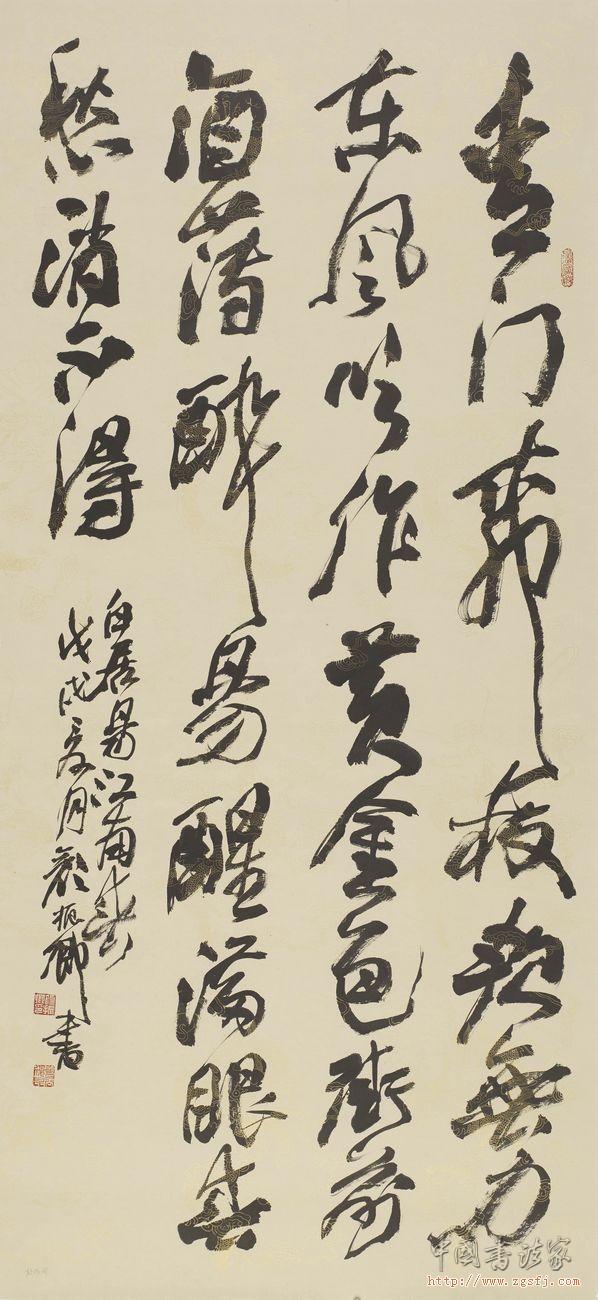 青门柳枝软無力
东風吹作黄金色街前
酒薄醉易醒满眼春
愁消不得
白居易江南春
戊戌夏月顏振卿書
中国书法家
http://www.zgsfj.com